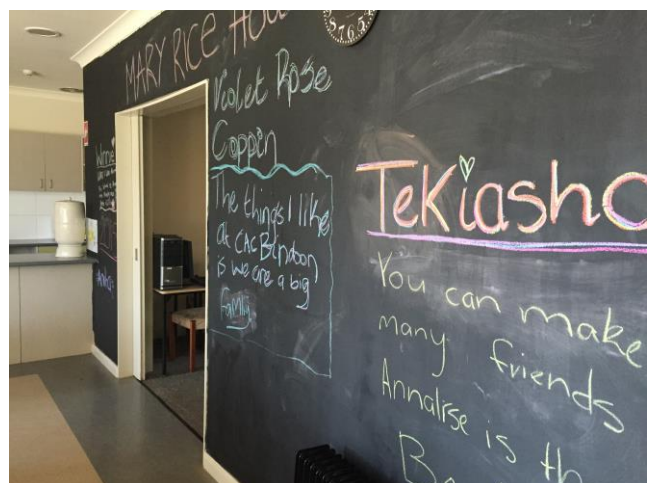 MARY RICE HOU
Violet Rose
Coppin
The things I like
at CAC Bendoon
is we are a big
Family
Tekiasho
You can make
many friends
Annalise is th
Be
Winnie